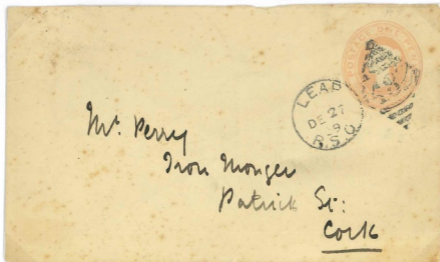 LEAP
DE 27
R.S.O.
Mr. Perry
Iron Monger
Patrick St:
Cork